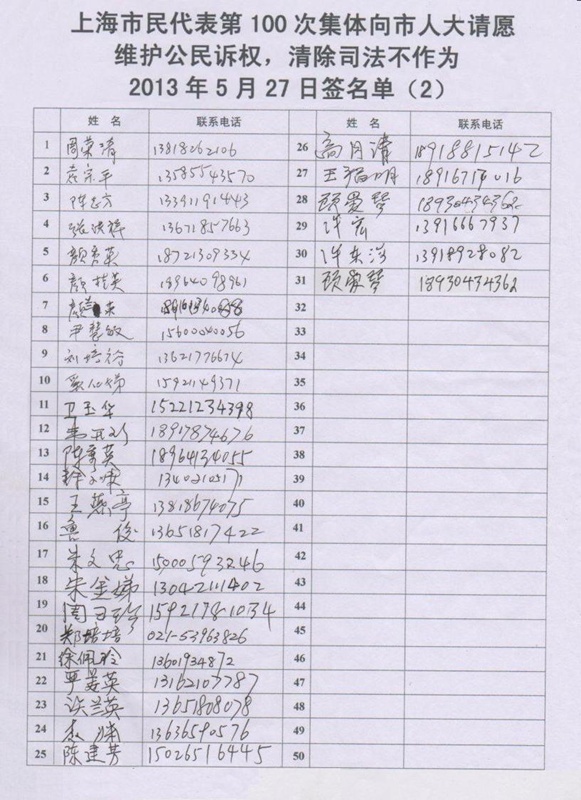 上海市民代表第 100 次集体向市人大请愿
维护公民诉权，清除司法不作为
2013 年 5 月 27 日签名单（2）
姓 名 联系电话 姓 名 联系电话
1 周荣清 13818062106 26 高月清
2 13585543570 27 王福明
3 陈志方 13391191443 28 顾曼琴 18930434362
4 13671857663 29 许宏 13916667937
5 颜秀英 18721309334 30 许东 13918928082
6 颜桂英 18964098961 31 顾曼琴 18930434362
7 32
8 尹慧敏 15600040056 33
9 刘培裕 13621776674 34
10 15921149371 35
11 卫玉华 15221234398 36
12 18917874676 37
13 陈秀英 18964134055 38
14 39
15 王燕亭 13818674075 40
16 鲁俊 13651817422 41
17 朱文忠 15000593246 42
18 宋金娣 13042111402 43
19 15921781034 44
20 郑培培 021-53963826 45
21 徐佩玲 13601934872 46
22 严美英 13162107787 47
23 许兰英 13651808078 48
24 13636590576 49
25 陈建芳 15026516445 50